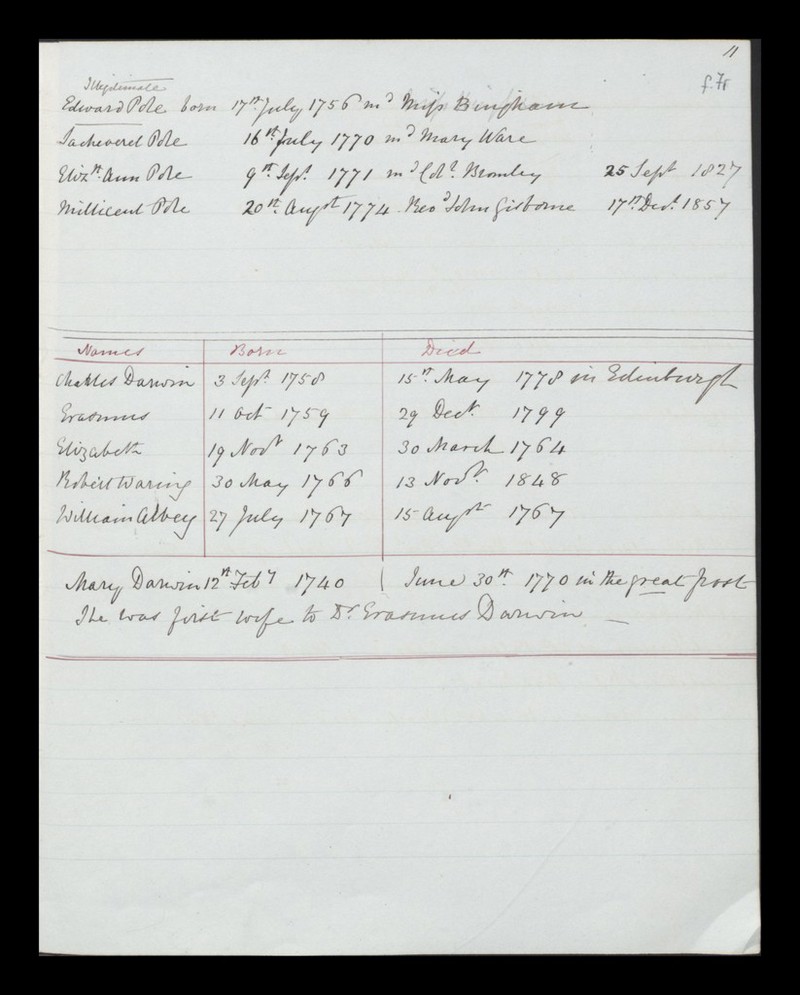 11
f.7r
Illegitimate
Edward Pole born 17th July 1756 md Miss Bingham
Sacheverel Pole 16th July 1770 md Mary Ware
Elizth Ann Pole 9th Sept. 1771 md Col. Bromley 25 Sept 1827
Millicent Pole 20th Augst 1774 Revd John Gisborne 17th Decr. 1857
Names Born Died
Charles Darwin 3 Sept. 1758 15th May 1778 in Edinburgh
Erasmus 11 Oct 1759 29 Decr. 1799
Elizabeth 19 Novr 1763 30 March 1764
Robert Waring 30 May 1766 13 Novr. 1848
William Alvey 27 July 1767 15 Augst 1767
Mary Darwin 12th Feby 1740 ( June 30th 1770 in the great frost
She was first wife to Dr Erasmus Darwin —